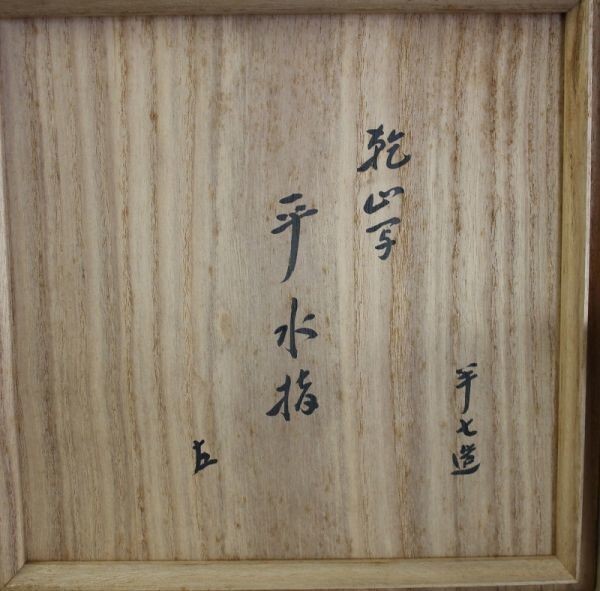 平七造
乾山写
平水指
左